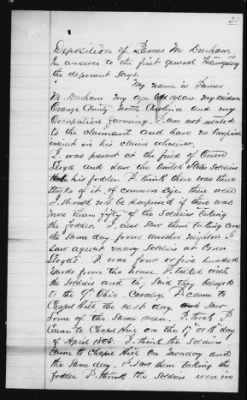 Deposition of James M. Durham
In answer to the first general Interrogatory
the deponent says
My name is James
M. Durham my age years. My residence
Orange County North Carolina and my
Occupation farming. I am not related
to the claimant and have no
interest in his claim whatever.
I was present at the field of
Lloyd and saw the United States Soldiers
his fodder. I think there was three
stacks of it, of common size. there were
I should not be surprised if there was
more than fifty of the Soldiers taking
the fodder. I also saw them taking
the same day from another
I saw a great many Soldiers at
Lloyd's I was four or five hundred
yards from the house. I talked with
the Soldiers and they said they belonged
to the 9th Ohio Cavalry. I came to
Chapel Hill the next day and saw
some of the same men. I think I
Came to Chapel Hill on the 17 or 18th day
of April 1865. I think the Soldiers
Came to Chapel Hill on Monday and
the same day I saw them taking the
fodder I think the Soldiers were in